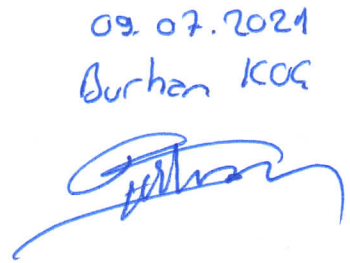 09.07.2021
Burhan KOÇ